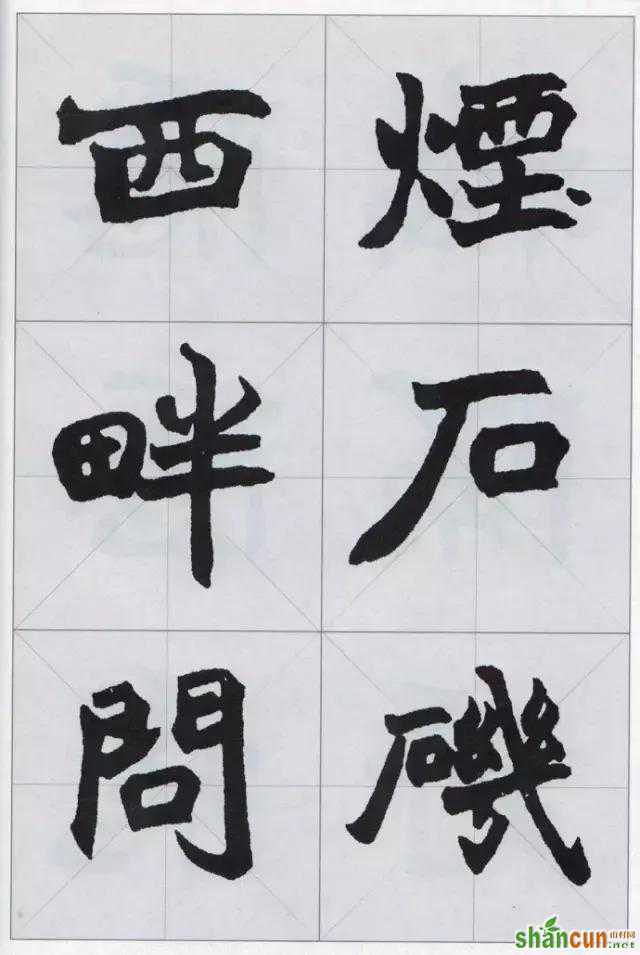 煙石磯
西畔問
shancun
山村网
.net